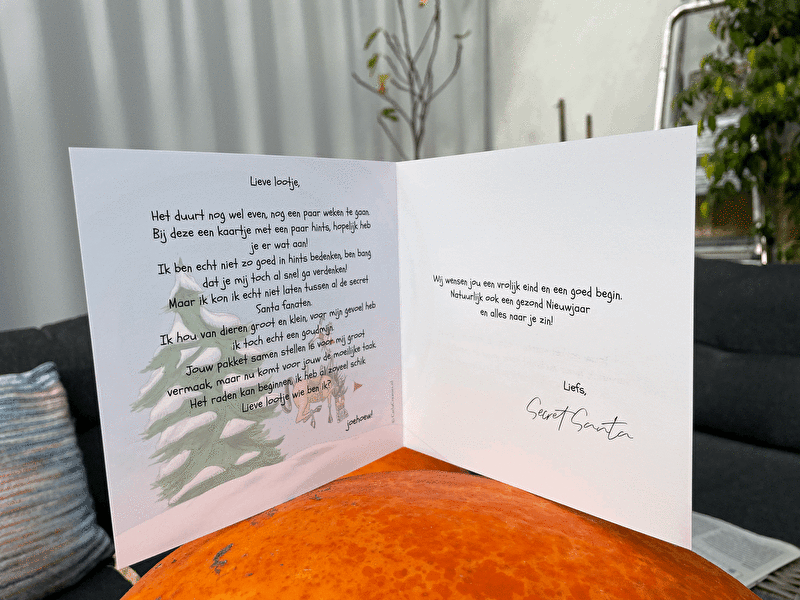 Lieve lootje,
Het duurt nog wel even, nog een paar weken te gaan.
Bij deze een kaartje met een paar hints, hopelijk heb
je er wat aan!
Ik ben echt niet zo goed in hints bedenken, ben bang
dat je mij toch al snel ga verdenken!
Maar ik kon ik echt niet laten tussen al de secret
Santa fanaten.
Ik hou van dieren groot en klein, voor mijn gevoel heb
ik toch echt een goudmijn.
Jouw pakket samen stellen is voor mij groot
vermaak, maar nu komt voor jouw de moeilijke taak.
Het raden kan beginnen, ik heb al zoveel schik
Lieve lootje wie ben ik?
joehoew!
Wij wensen jou een vrolijk eind en een goed begin.
Natuurlijk ook een gezond Nieuwjaar
en alles naar je zin!
Liefs,
Secret Santa